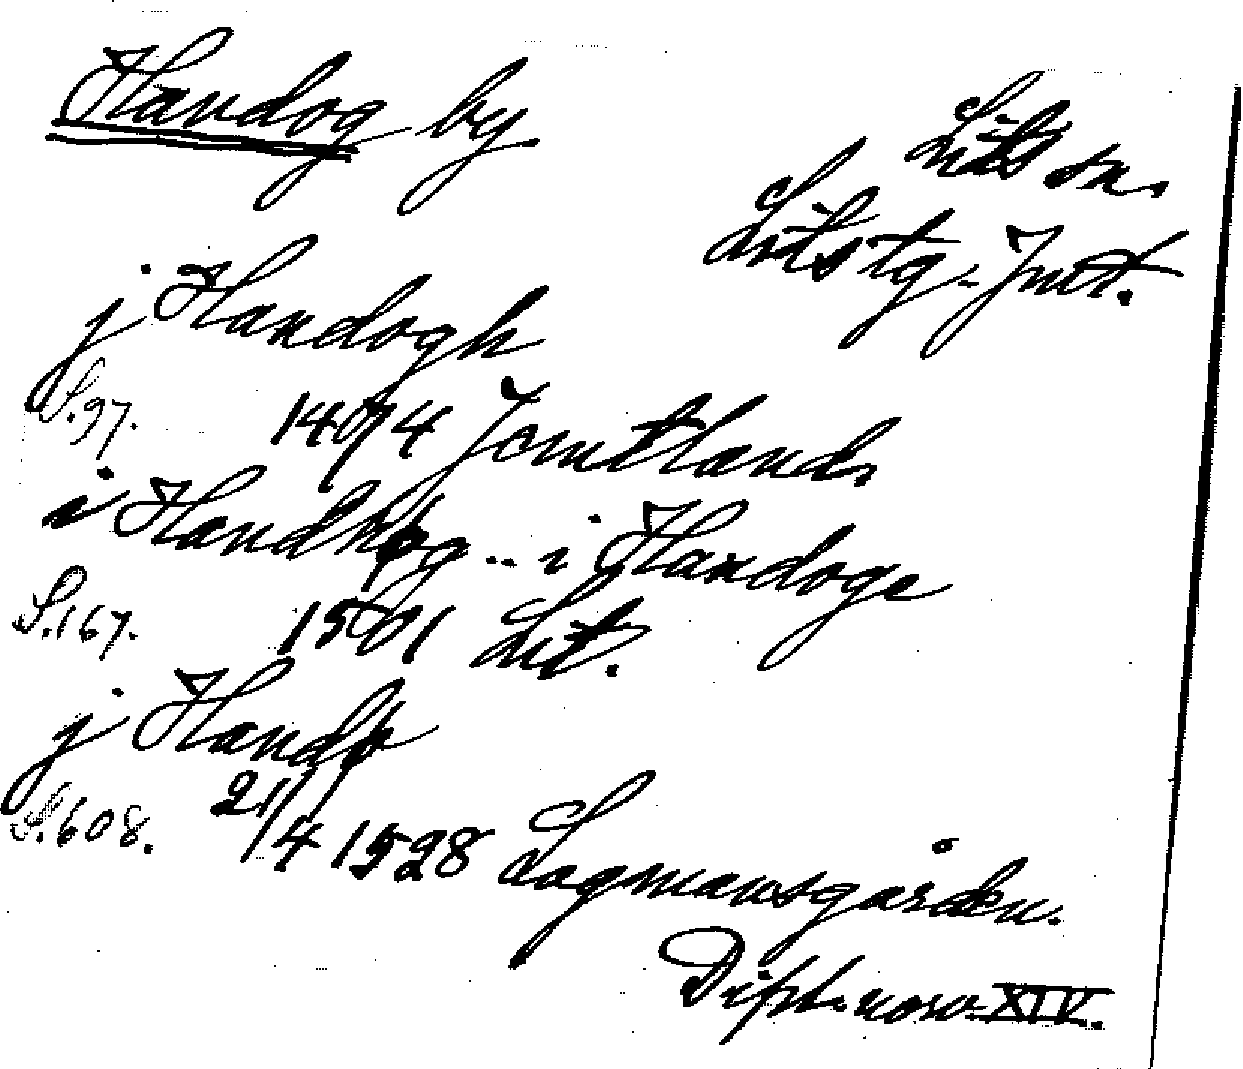 Handog by
Lits sn.
Lits tg. Jmt.
j Handogh
S. 97. 1474 Jemtland.
i Handhög .. i Handoge
S. 167. 1501 Lit.
j Handö
S. 608. 21/4 1528 Lagmansgården.
Dipl. norv. XIV.